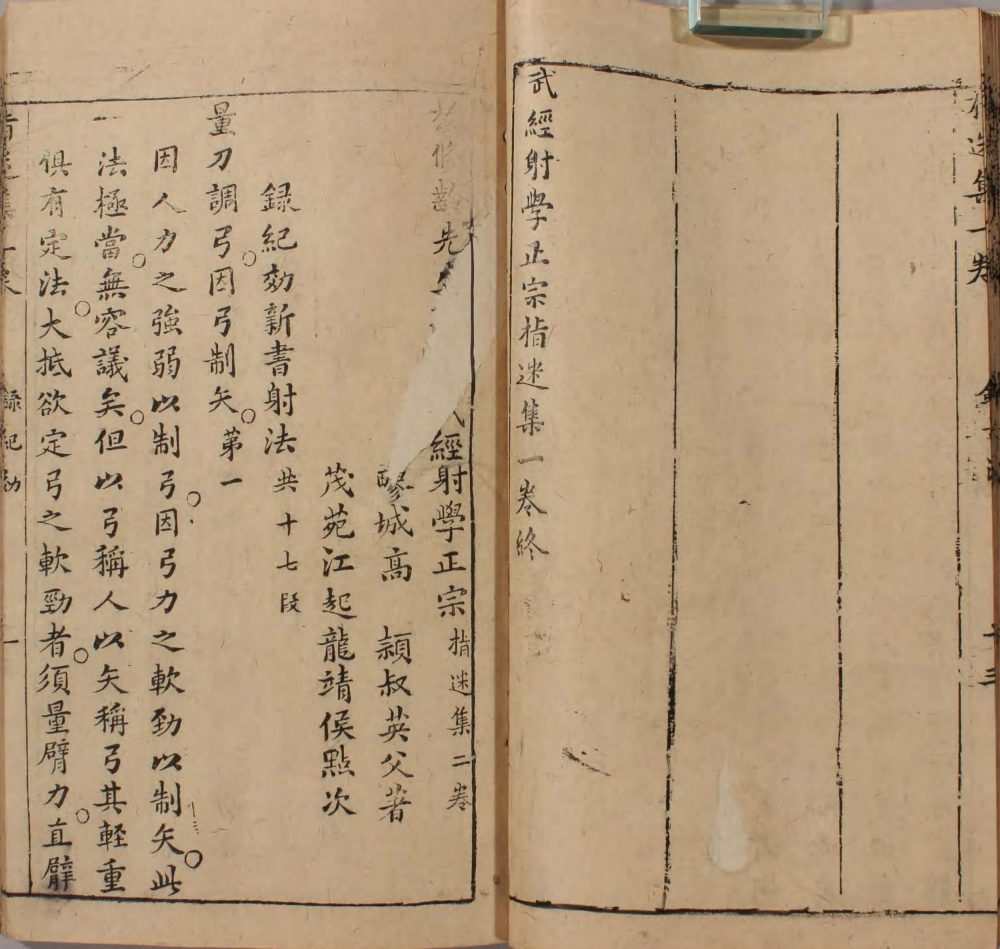 武經射學正宗指迷集一卷終
先
經射學正宗指迷集二卷
城高　頴叔英父著
茂苑江起龍靖侯點次
録紀効新書射法共十七段
量力調弓。因弓制矢。第一
因人力之強弱以制弓。因弓力之軟勁以制矢。此
法極當。無容議矣。但以弓稱人以矢稱弓其輕重
俱有定法。大抵欲定弓之軟勁者。須量臂力。直臂
録紀効
一